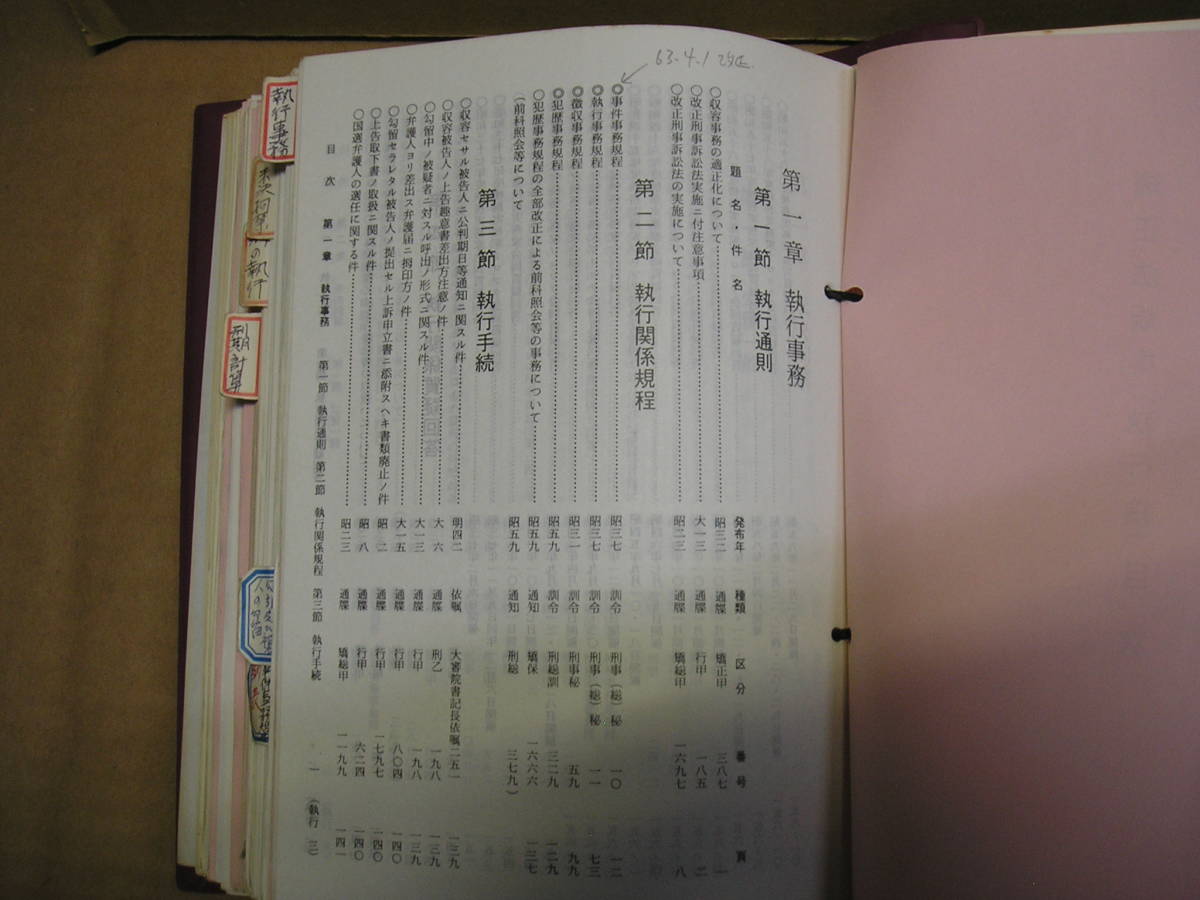 63.4.1 改正
第一章 執行事務
第一節 執行通則
題名・件名 発布年 種類 区分 番号 頁
○収容事務の適正化について 昭三二 通牒 矯正甲 三八七 一
○改正刑事訴訟法実施ニ付注意事項 大一三 通牒 行甲 一八五 二
○改正刑事訴訟法の実施について 昭二三 通牒 矯総甲 一六九七 八
第二節 執行関係規程
◎事件事務規程 昭三七 訓令 刑事(総)秘 一〇 一二
◎執行事務規程 昭三七 訓令 刑事(総)秘 一一 七三
◎徴収事務規程 昭三一 訓令 刑事秘 五九 九九
◎犯歴事務規程 昭五九 訓令 刑総訓 三二九 一二九
○犯歴事務規程の全部改正による前科照会等の事務について 昭五九 通知 矯保 一六六六 一三七
(前科照会等について 昭五九 通知 刑総 三七九)
第三節 執行手続
○収容セサル被告人ニ公判期日等通知ニ関スル件 明四二 依嘱 大審院書記長依嘱 二五一 一三九
○収容被告人ノ上告趣意書差出方注意ノ件 大六 通牒 刑乙 一九八 一三九
○勾留中ノ被疑者ニ対スル呼出ノ形式ニ関スル件 大一三 通牒 行甲 一九八 一三九
○弁護人ヨリ差出ス弁護届ニ拇印方ノ件 大一五 通牒 行甲 八〇四 一四〇
○勾留セラレタル被告人ノ提出セル上訴申立書ニ添附スヘキ書類廃止ノ件 昭二 通牒 行甲 一七九七 一四〇
○上告取下書ノ取扱ニ関スル件 昭八 通牒 行甲 六二四 一四〇
○国選弁護人の選任に関する件 昭二三 通牒 矯総甲 一一九九 一四一
目次 第一章 執行事務 第一節 執行通則 第二節 執行関係規程 第三節 執行手続 一 (執行 三)
執行事務
の執行
刑期計算